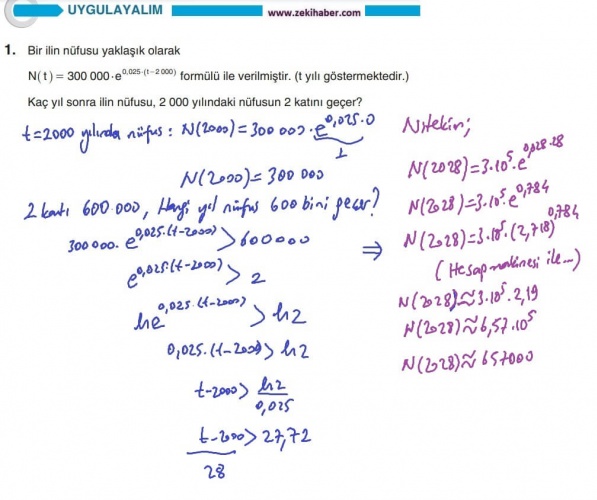 UYGULAYALIM
www.zekihaber.com
1. Bir ilin nüfusu yaklaşık olarak
N(t) = 300 000·e^0,025·(t−2 000) formülü ile verilmiştir. (t yılı göstermektedir.)
Kaç yıl sonra ilin nüfusu, 2 000 yılındaki nüfusun 2 katını geçer?
t=2000 yılında nüfus : N(2000) = 300 000·e^0,025·0
1
N(2000) = 300 000
2 katı 600.000, Hangi yıl nüfus 600 bini geçer?
300 000·e^0,025·(t−2000) > 600000
e^0,025·(t−2000) > 2
ln e^0,025·(t−2000) > ln2
0,025·(t−2000) > ln2
t−2000 > ln2/0,025
t−2000 > 27,72
28
Nitekim;
N(2028) = 3·10^5·e^0,028·28
N(2028) = 3·10^5·e^0,784
⇒ N(2028) = 3·10^5·(2,718)^0,784
(Hesap makinesi ile...)
N(2028) ≈ 3·10^5·2,19
N(2028) ≈ 6,57·10^5
N(2028) ≈ 657000